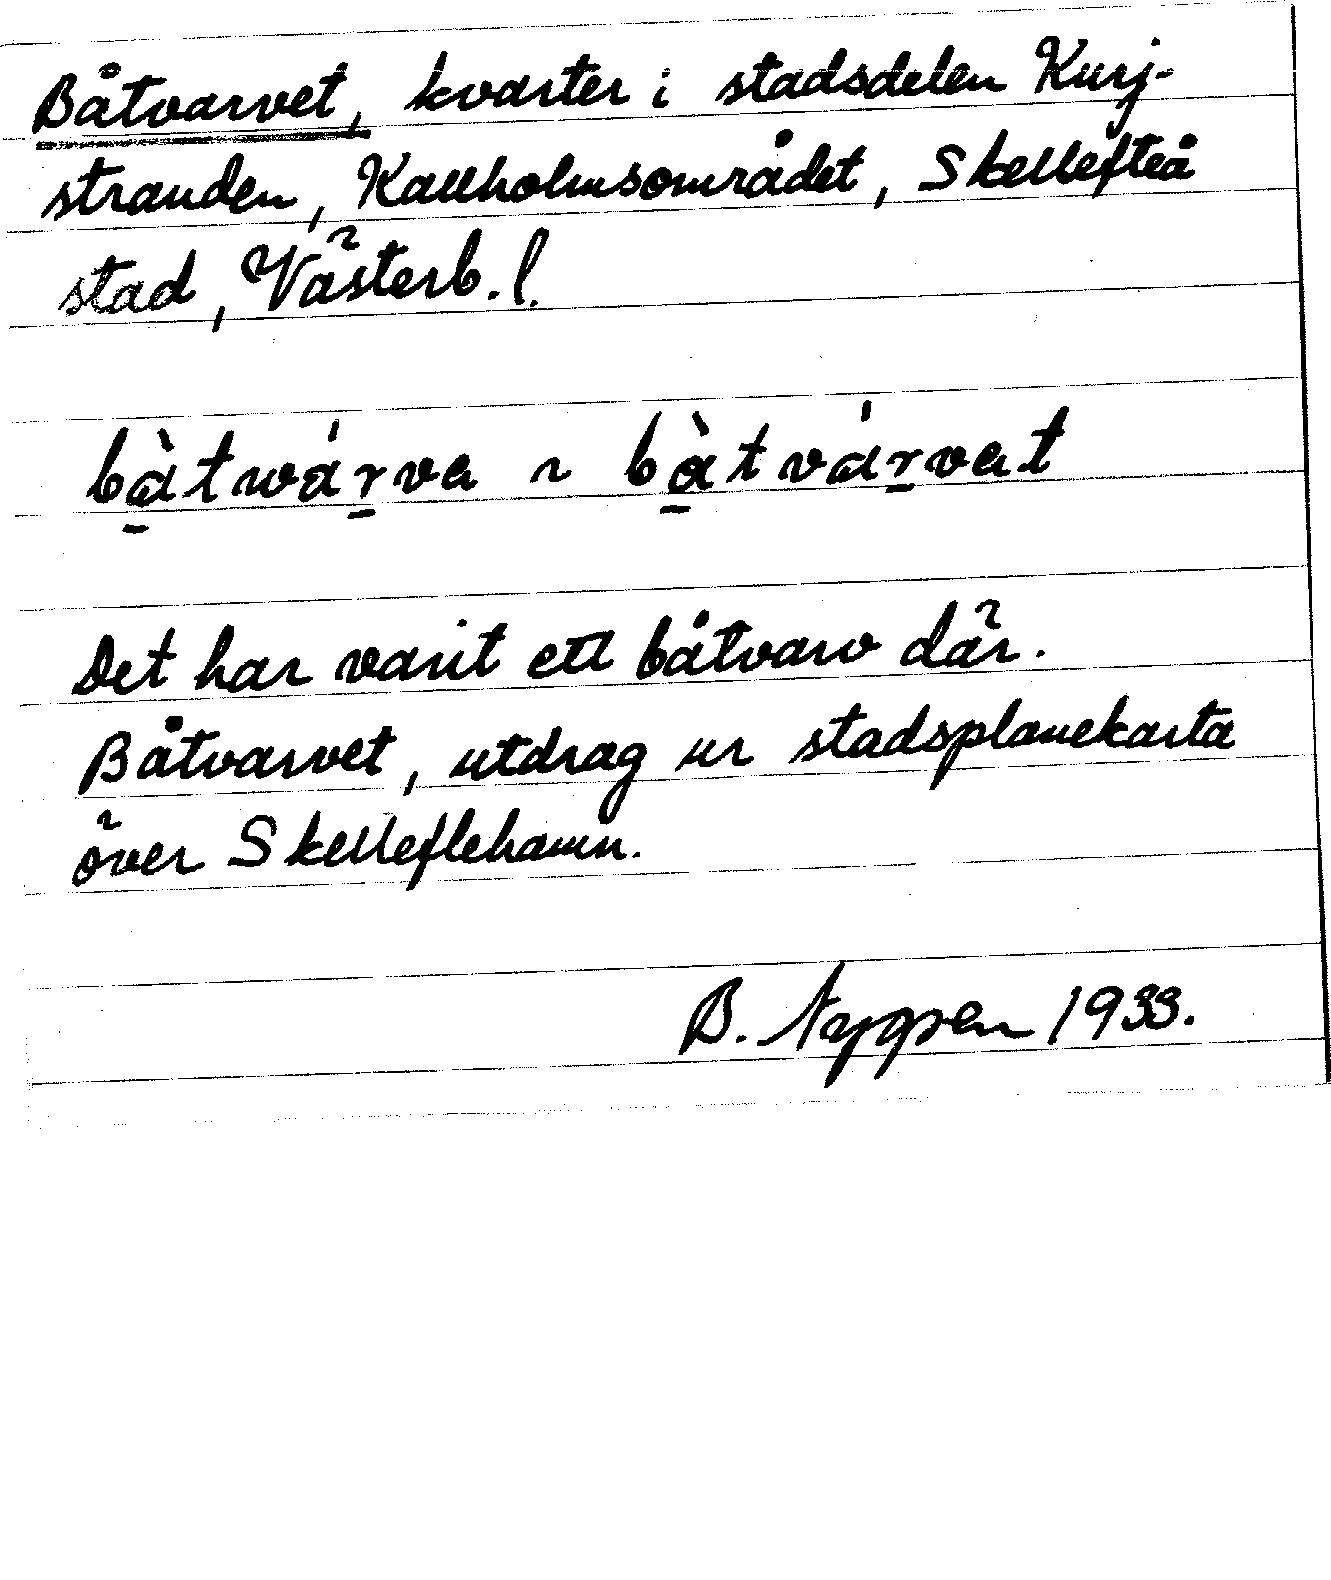 Båtvarvet, kvarter i stadsdelen Kurj-
stranden, Kallholmsområdet, Skellefteå
stad, Västerb. l.
bà̱twár̠va ~ bà̱tvár̠vat
Det har varit ett båtvarv där.
Båtvarvet, utdrag ur stadsplanekarta
över Skelleftehamn.
B. Nygren 1933.